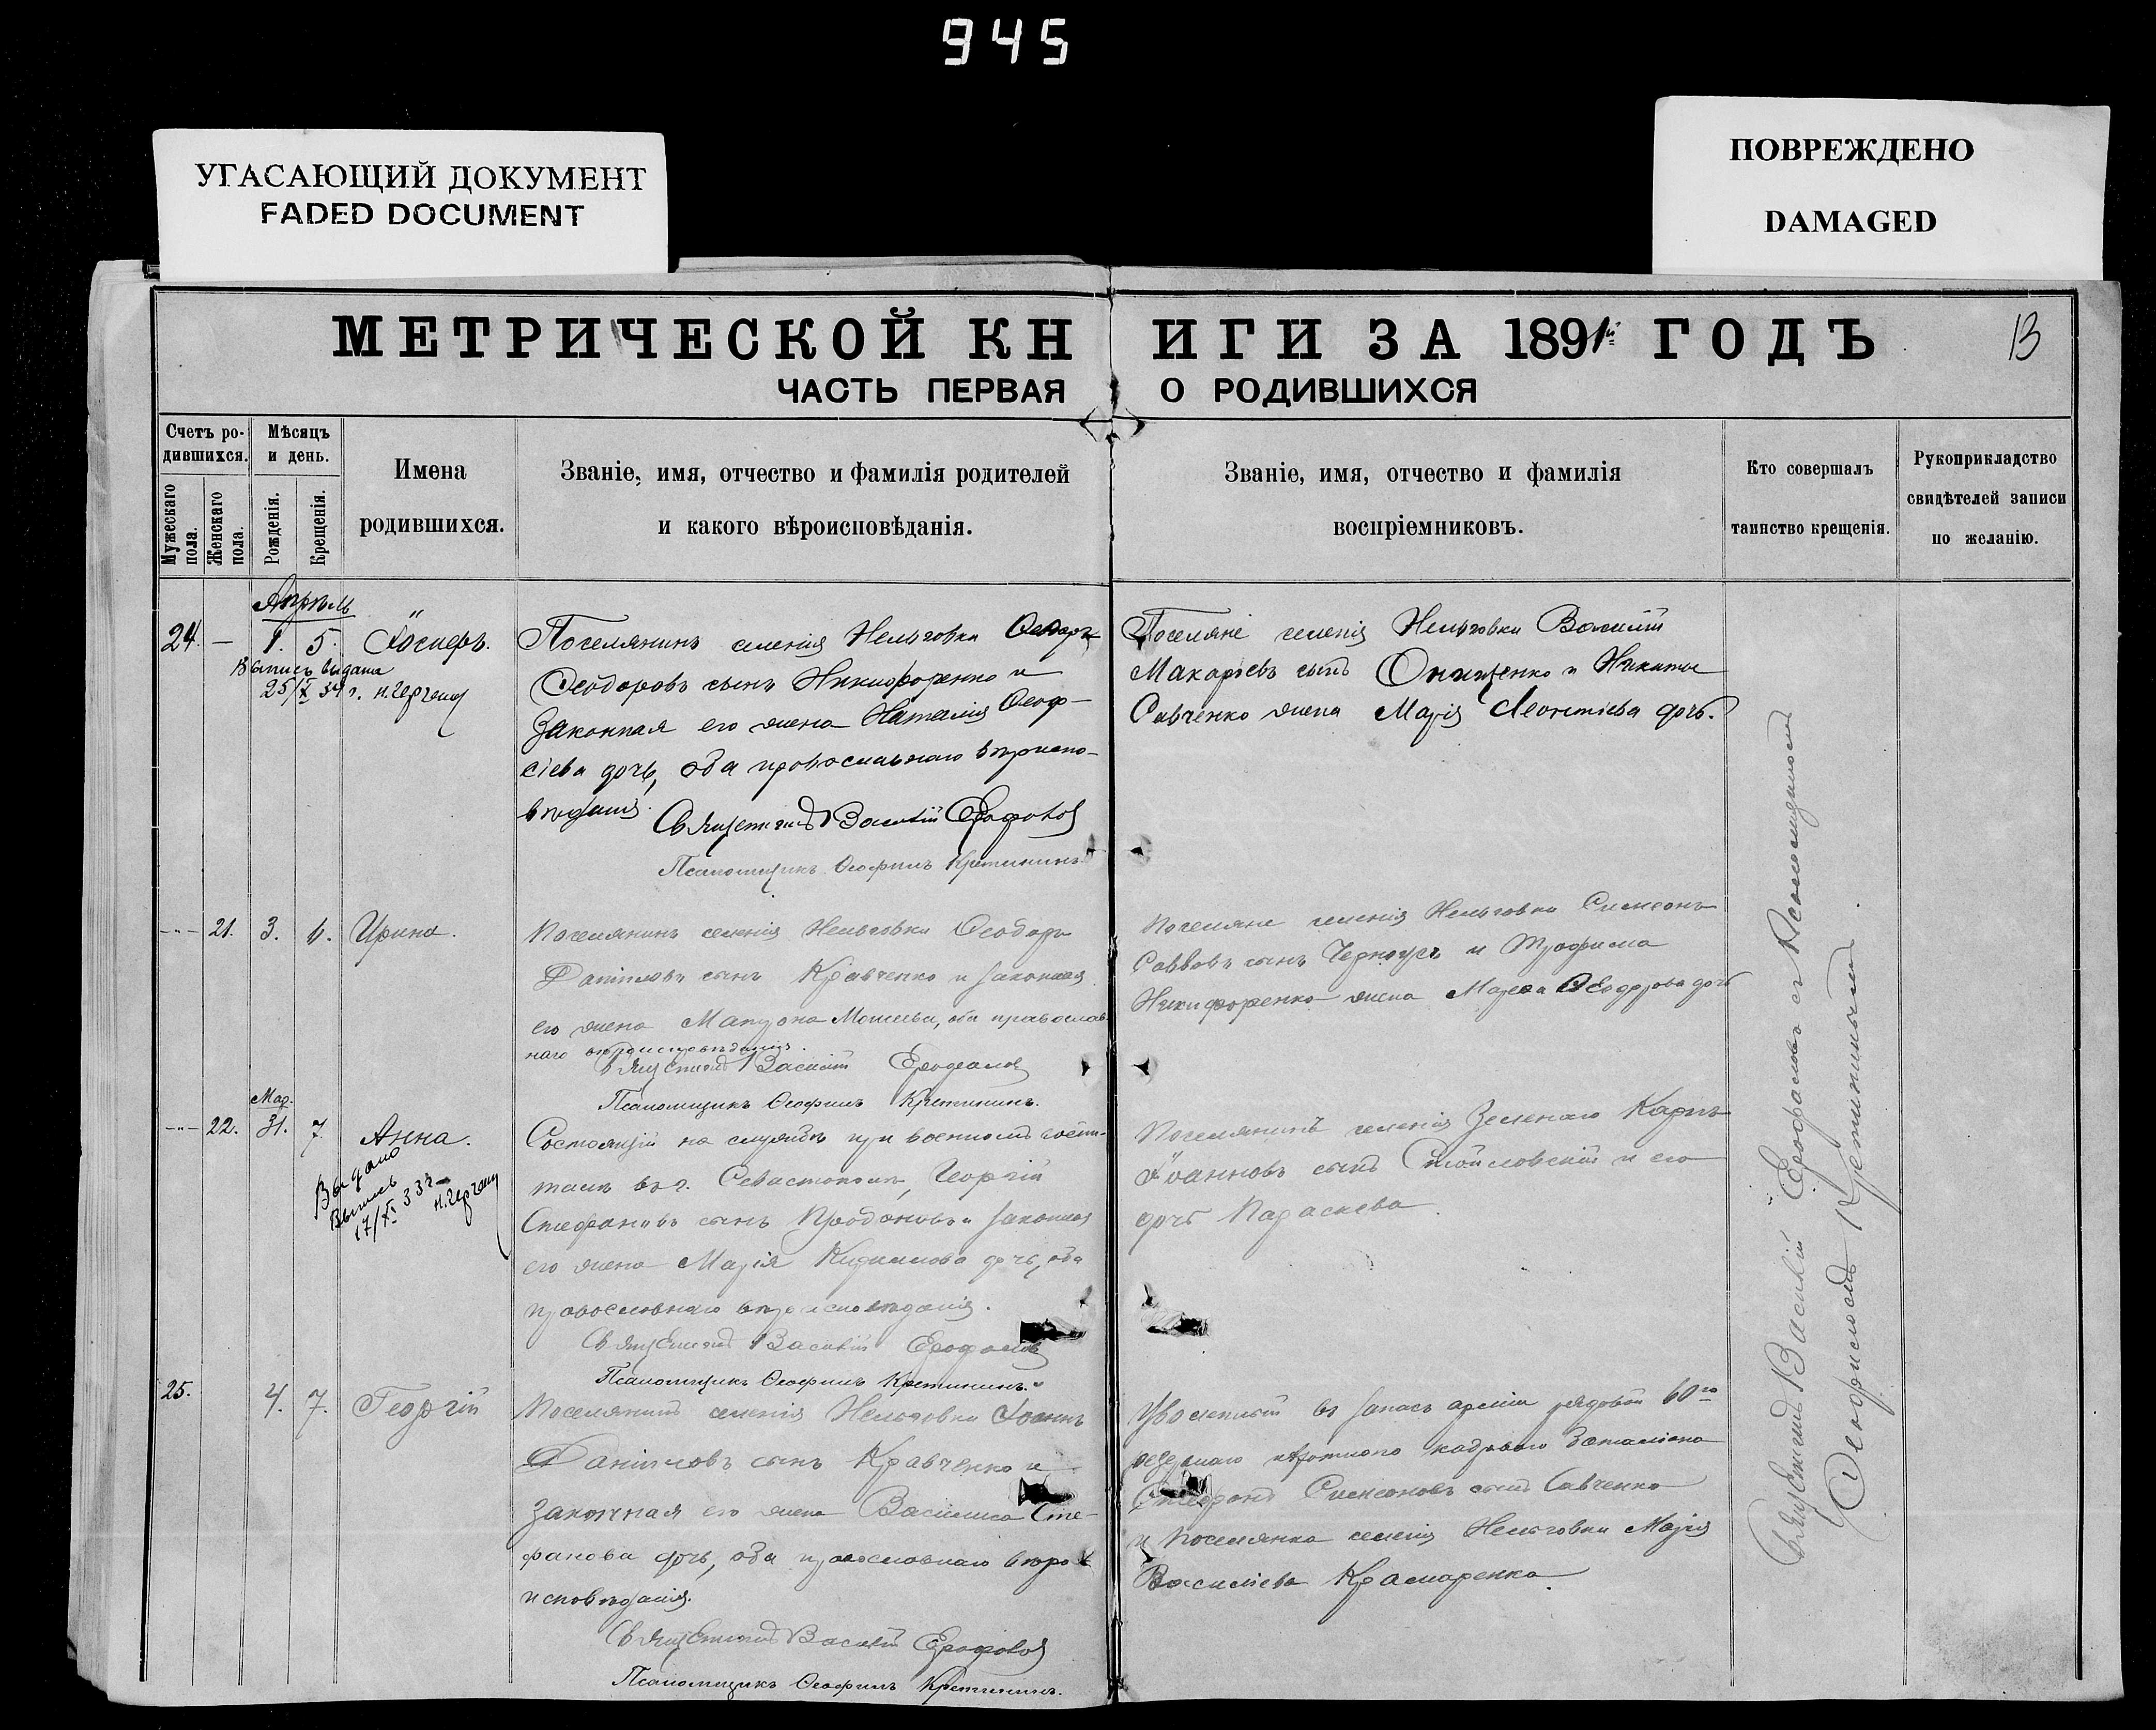 945
УГАСАЮЩИЙ ДОКУМЕНТ
FADED DOCUMENT
ПОВРЕЖДЕНО
DAMAGED
МЕТРИЧЕСКОЙ КН ИГИ ЗА 1891й ГОДЪ
13
ЧАСТЬ ПЕРВАЯ О РОДИВШИХСЯ
Счетъ ро-
дившихся.
Мужескаго пола.
Женскаго пола.
Мѣсяцъ
и день.
Рожденія.
Крещенія.
Имена
родившихся.
Званіе, имя, отчество и фамилія родителей
и какого вѣроисповѣданія.
Званіе, имя, отчество и фамилія
воспріемниковъ.
Кто совершалъ
таинство крещенія.
Рукоприкладство
свидѣтелей записи
по желанію.
Апрѣль
24. — 1. 5. Іосифъ.
Выпись выдана
25/X 34 г.
Поселянинъ селенія Нельговки Ѳеодоръ
Ѳеодоровъ сынъ Никифоренко и
законная его жена Наталія Ѳеоф-
сіева дочь, оба православнаго вѣроиспо-
вѣданія.
Священникъ Василій Ерофаловъ
Псаломщикъ Ѳеофилъ Кретининъ.
Поселяне селенія Нельговки Василій
Макаріевъ сынъ Онищенко и Никиты
Савченко жена Марія Леонтіева дочь.
21. 3. 6. Ирина.
Поселянинъ селенія Нельговки Ѳеодоръ
Даніиловъ сынъ Кравченко и законная
его жена Матрона Моисеева, оба православ-
наго вѣроисповѣданія.
Священникъ Василій Ерофаловъ
Псаломщикъ Ѳеофилъ Кретининъ.
Поселяне селенія Нельговки Симеонъ
Саввовъ сынъ Черноусъ и Трофима
Никифоренко жена Ѳеодорова дочь
Мар.
22. 31. 7. Анна.
Выдано
Выпись
17/XI 33 г.
Состоящій на службѣ при военномъ госпи-
талѣ въ г. Севастополѣ, Георгій
Стефановъ сынъ Продановъ и законная
его жена Марія дочь, оба
православнаго вѣроисповѣданія.
Священникъ Василій Ерофаловъ
Псаломщикъ Ѳеофилъ Кретининъ.
Поселянинъ селенія Зеленаго Карпъ
Іоанновъ сынъ и его
дочь Параскева.
25. 4. 7. Георгій
Поселянинъ селенія Нельговки Іоаннъ
Даніиловъ сынъ Кравченко и
законная его жена Василиса Сте-
фанова дочь, оба православнаго вѣро-
исповѣданія.
Священникъ Василій Ерофаловъ
Псаломщикъ Ѳеофилъ Кретининъ.
Уволенный въ запасъ арміи рядовой 60го
резервнаго пѣхотнаго кадроваго баталіона
Стефанъ Симеоновъ сынъ Савченко
и поселянка селенія Нельговки Марія
Василіева Крамаренко.
Священникъ Василій Ерофаловъ съ Псаломщикомъ
Ѳеофиломъ Кретининымъ.